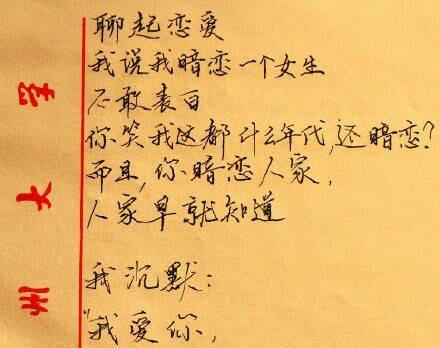 聊起恋爱
我说我暗恋一个女生
不敢表白
你笑我这都什么年代,还暗恋?
而且,你暗恋人家,
人家早就知道
我沉默:
"我爱你,
州大学